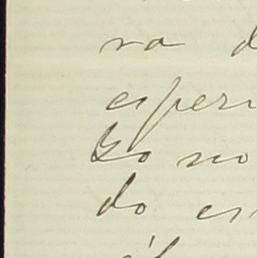 va d
esperi
zo no
do es